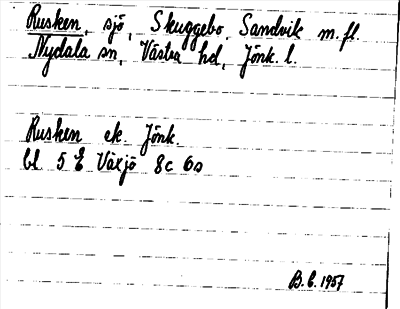 Rusken, sjö, Skuggebo, Sandvik m.fl.
Nydala sn, Västra hd, Jönk. l.
Rusken ek. Jönk.
bl 5 E Växjö 8c 60
B.E. 1957